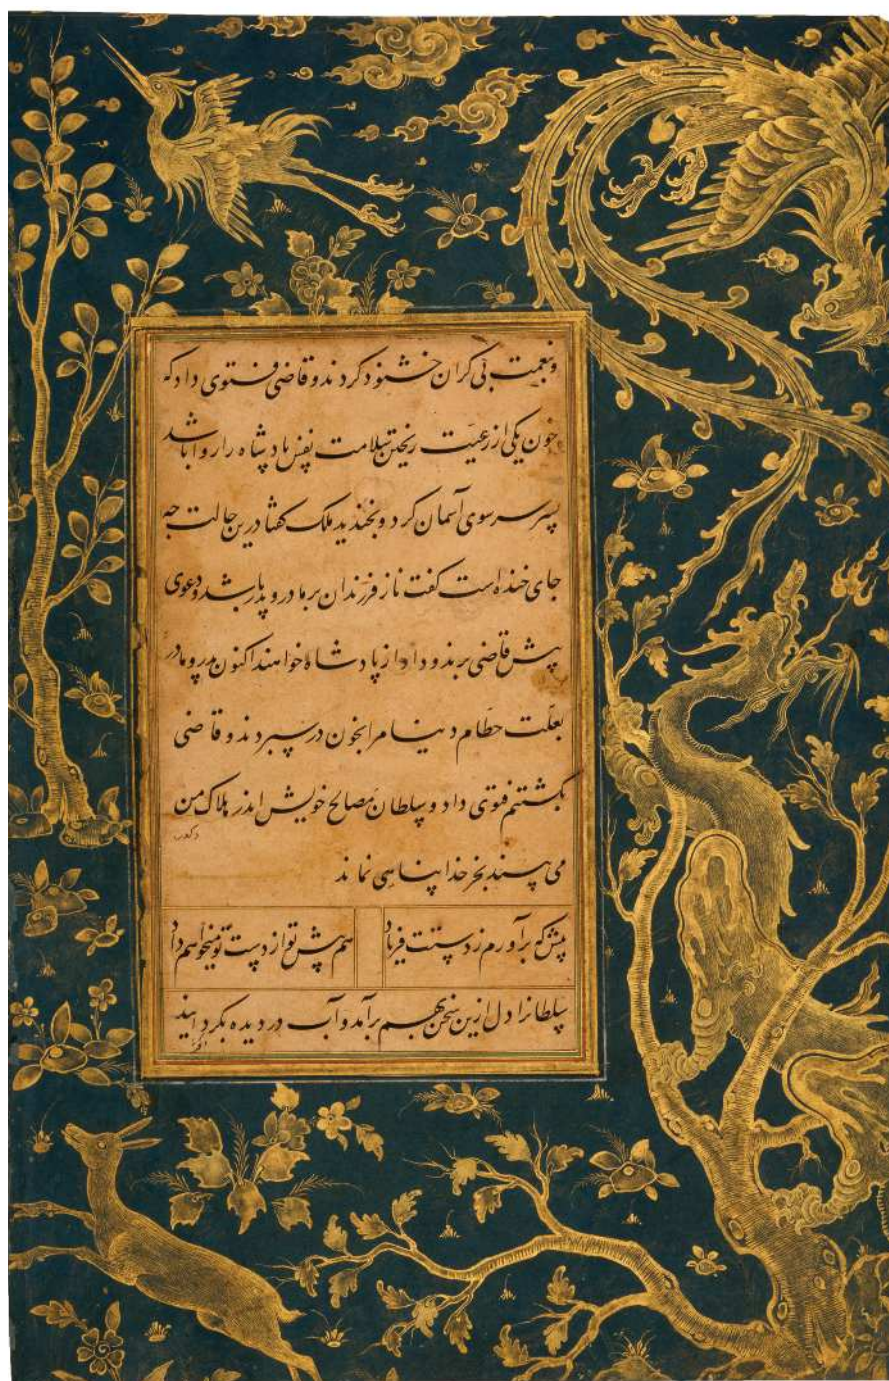 ونبعمت بی کران خشنود کردند و قاضی فتوی داد که
خون یکی از رعیت ریختن سلامت نفس پادشاه را روا باشد
پسر سر سوی آسمان کرد و بخندید ملک گفتا درین حالت چه
جای خنده است گفت ناز فرزندان بر مادر و پدر باشد و دعوی
پیش قاضی برند و داد از پادشاه خواهند اکنون پدر و مادر
بعلت حطام دنیا مرا بخون در سپردند و قاضی
بکشتنم فتوی داد و سلطان مصالح خویش اندر هلاک من
می بیند بجز خدا پناهی نماند
پیش که برآورم ز دستت فریاد
هم پیش تو از دست تو میخواهم داد
سلطانرا دل ازین سخن بهم برآمد و آب در دیده بگردانید